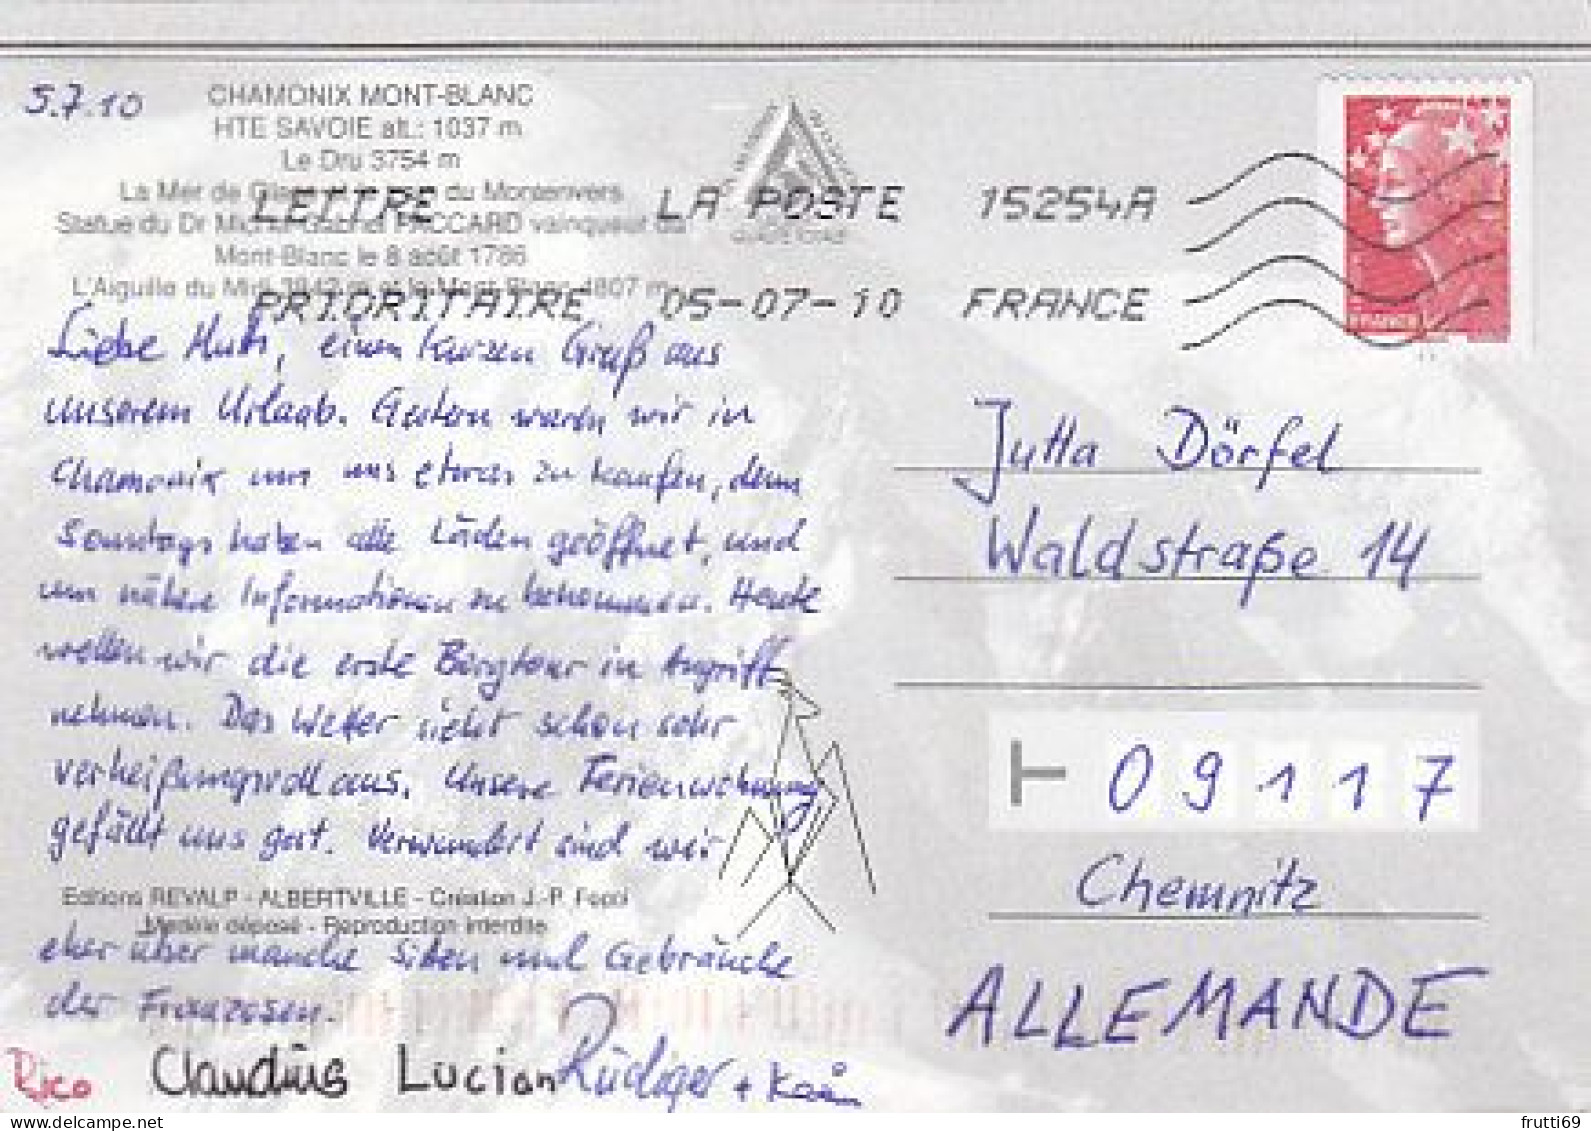 5.7.10
CHAMONIX MONT-BLANC
HTE SAVOIE alt.: 1037 m
Le Dru 3754 m
La Mer de Glace et le train du Montenvers
Statue du Dr Michel Gabriel PACCARD vainqueur du
Mont-Blanc le 8 août 1786
L'Aiguille du Midi 3842 m et le Mont-Blanc 4807 m
LETTRE LA POSTE 15254A
PRIORITAIRE 05-07-10 FRANCE
FRANCE
Liebe Mutti, einen kurzen Gruß aus
unserem Urlaub. Gestern waren wir in
Chamonix um uns etwas zu kaufen, denn
Sonntags haben alle Läden geöffnet, und
um nähere Informationen zu bekommen. Heute
wollen wir die erste Bergtour in Angriff
nehmen. Das Wetter sieht schon sehr
verheißungsvoll aus. Unsere Ferienwohnung
gefällt uns gut. Verwundert sind wir
Editions REVALP - ALBERTVILLE - Création J.-P.
Modèle déposé - Reproduction interdite
eher über manche Sitten und Gebräuche
der Franzosen.
Rico Claudius Lucian Rüdiger +
Jutta Dörfel
Waldstraße 14
09117
Chemnitz
ALLEMANDE
frutti69